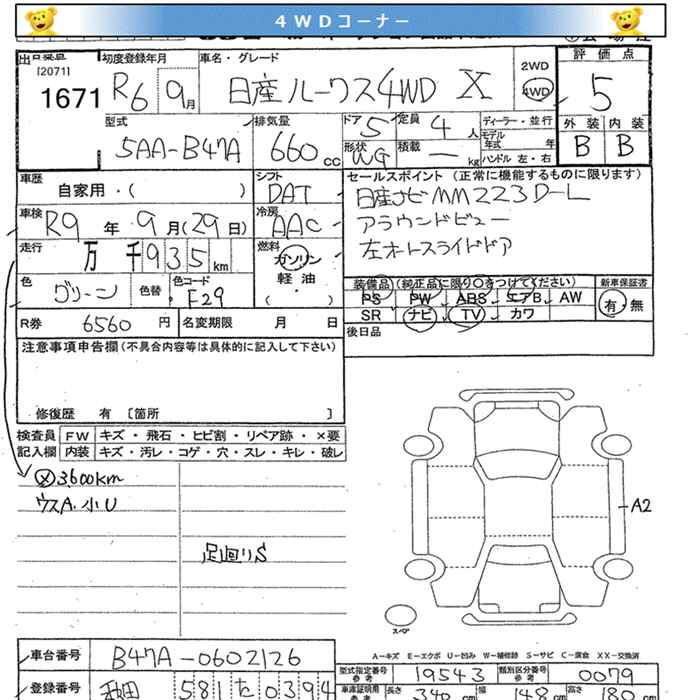 4WDコーナー
出
[2071]
1671
初度登録年月
R6 9月
車名・グレード
日産ルークス4WD X
2WD
4WD
評価点
5
外装 内装
B B
型式
5AA-B47A
排気量
660cc
ドア 5
定員 4人
形状 WG
積載 ― kg
ディーラー・並行
モデル年式 年式
ハンドル 左・右
車歴
自家用・( )
シフト
DAT
セールスポイント (正常に機能するものに限ります)
日産ナビMM223D-L
アラウンドビュー
左オートスライドドア
車検 R9年9月(29日)
冷房 AAC
走行 万千935km
燃料
ガソリン
軽油・
( )
色 グリーン
色替
色コード
F29
装備品 (純正品に限り○をつけてください)
PS PW ABS エアB AW
SR ナビ TV カワ
新車保証書
有・無
後日品
R券 6560円
名変期限 月 日
注意事項申告欄(不具合内容等は具体的に記入して下さい)
修復歴 有 〔箇所 〕
検査員記入欄
FW キズ・飛石・ヒビ割・リペア跡・×要
内装 キズ・汚レ・コゲ・穴・スレ・キレ・破レ
メ 3,600km
ウスA・小U
足廻りS
A2
スペア
A-キズ E-エクボ U-凹み W-補修跡 S-サビ C-腐食 XX-交換済
車台番号 B47A-0602126
登録番号 秋田 581 た 0394
型式指定番号 参考 19543
類別区分番号 参考 0079
車庫証明用 参考 長さ 340cm 幅 148cm 高さ 180cm